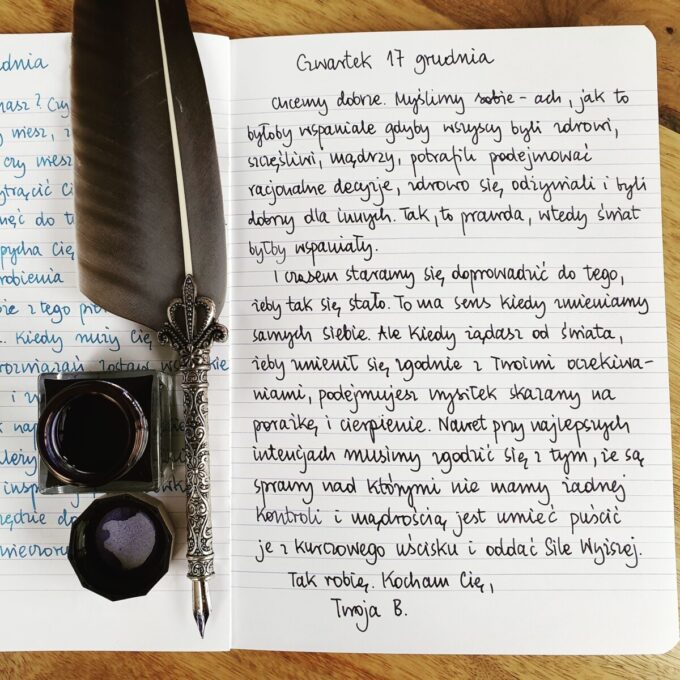 dnia
nasz? Czy
czy niesz
pycha Cię
robienia
Kiedy nuży Cię
Czwartek 17 grudnia
Chcemy dobrze. Myślimy sobie - ach, jak to
byłoby wspaniale gdyby wszyscy byli zdrowi,
szczęśliwi, mądrzy, potrafili podejmować
racjonalne decyzje, zdrowo się odżywiali i byli
dobrzy dla innych. Tak, to prawda, wtedy świat
byłby wspaniały.
I czasem staramy się doprowadzić do tego,
żeby tak się stało. To ma sens kiedy zmieniamy
samych siebie. Ale kiedy żądasz od świata,
żeby zmienił się zgodnie z Twoimi oczekiwa-
niami, podejmujesz wysiłek skazany na
porażkę i cierpienie. Nawet przy najlepszych
intencjach musimy zgodzić się z tym, że są
sprawy nad którymi nie mamy żadnej
kontroli i mądrością jest umieć puścić
je z kurczowego uścisku i oddać Sile Wyższej.
Tak robię. Kocham Cię,
Twoja B.